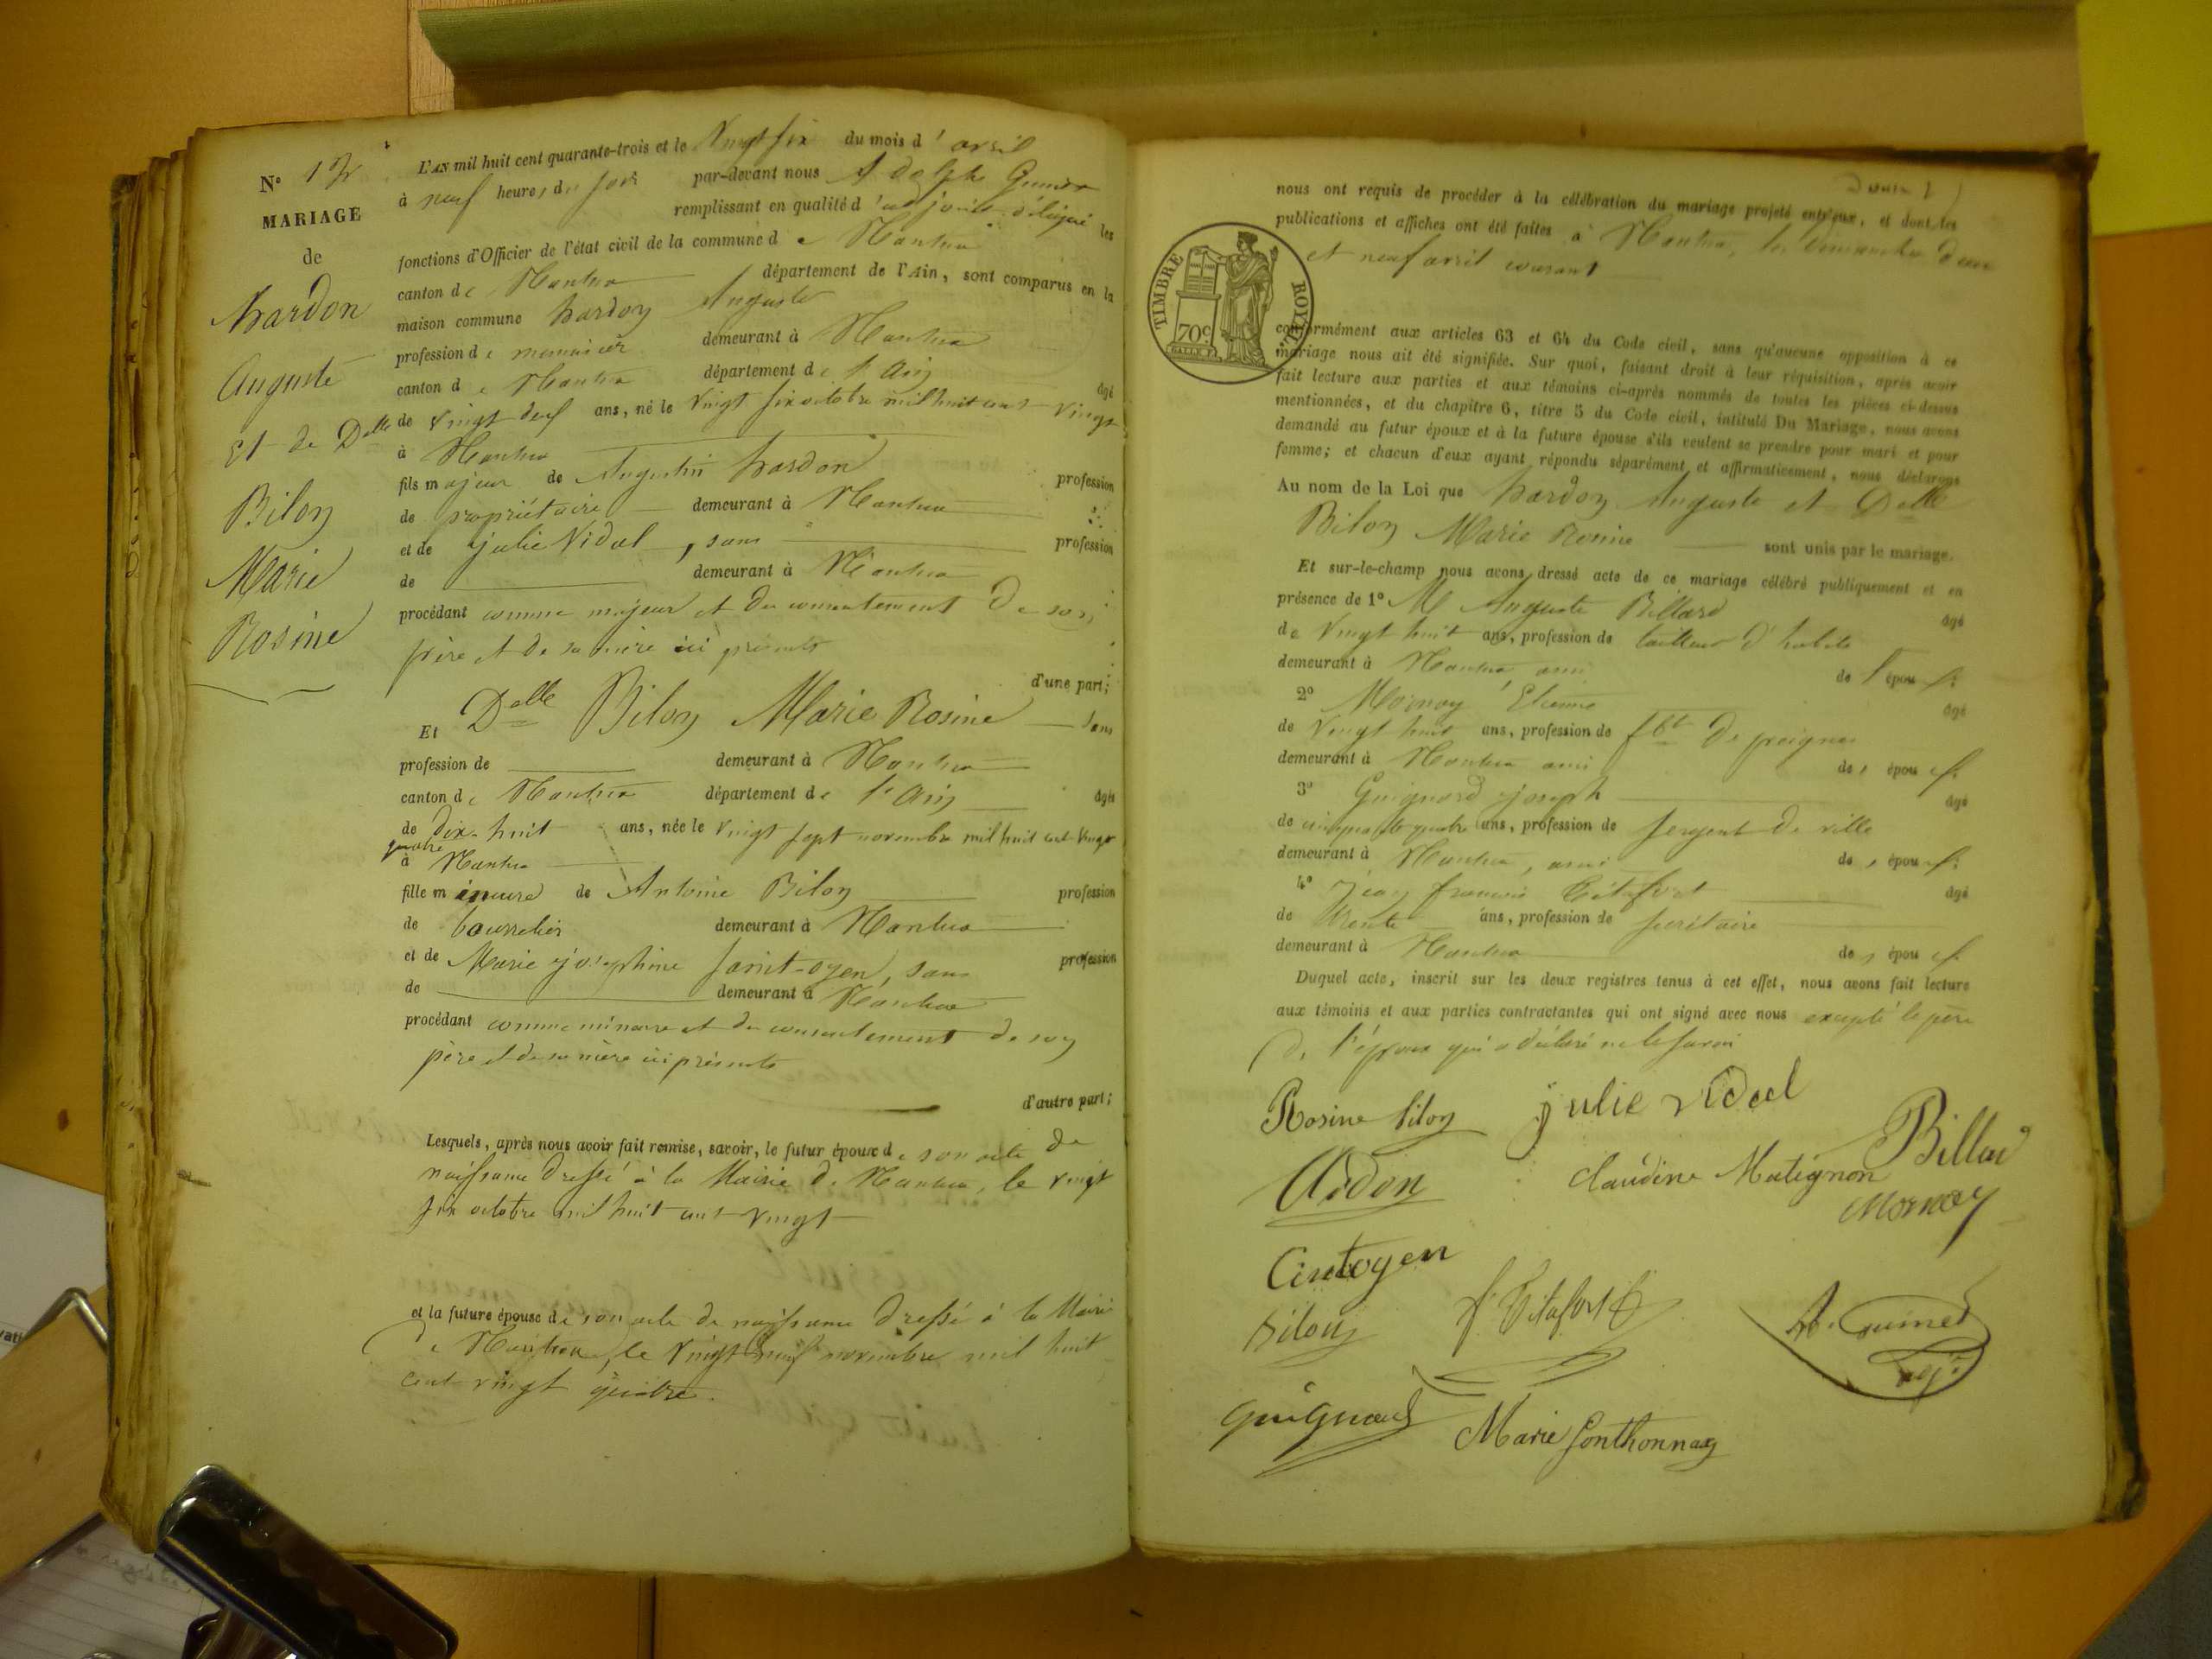 N° 13
MARIAGE
de
hardon
Auguste
Et de Delle
Bilon
Marie
Rosine
L'AN mil huit cent quarante-trois et le Vingt six du mois d'avril
à neuf heures du soir par-devant nous Adolphe
remplissant en qualité d'adjoint délégué les
fonctions d'Officier de l'état civil de la commune de Nantua
canton de Nantua département de l'Ain, sont comparus en la
maison commune hardon Auguste
profession de menuisier demeurant à Nantua
canton de Nantua département de l'Ain âgé
de vingt deux ans, né le vingt six octobre mil huit cent vingt
à Nantua
fils majeur de Augustin hardon profession
de propriétaire demeurant à Nantua
et de julie Vidal, sans profession
de demeurant à Nantua
procédant comme majeur et du consentement de son
père et de sa mère ici présents
d'une part;
Et Delle Bilon Marie Rosine sans
profession de demeurant à Nantua
canton de Nantua département de l'Ain âgée
de dix-huit ans, née le vingt sept novembre mil huit cent vingt
quatre
à Nantua
fille mineure de Antoine Bilon profession
de bourrelier demeurant à Nantua
et de Marie josephine Saint-oyen, sans profession
de demeurant à Nantua
procédant comme mineure et du consentement de son
père et de sa mère ici présents
d'autre part;
Lesquels, après nous avoir fait remise, savoir, le futur époux de son acte de
naissance dressé à la Mairie de Nantua, le vingt
six octobre mil huit cent vingt
et la future épouse de son acte de naissance dressé à la Mairie
de Nantua, le vingt neuf novembre mil huit
cent vingt quatre.
nous ont requis de procéder à la célébration du mariage projeté entr'eux, et dont les
publications et affiches ont été faites à Nantua, les dimanches deux
et neuf avril courant
TIMBRE ROYAL
70c
conformément aux articles 63 et 64 du Code civil, sans qu'aucune opposition à ce
mariage nous ait été signifiée. Sur quoi, faisant droit à leur réquisition, après avoir
fait lecture aux parties et aux témoins ci-après nommés de toutes les pièces ci-dessus
mentionnées, et du chapitre 6, titre 5 du Code civil, intitulé Du Mariage, nous avons
demandé au futur époux et à la future épouse s'ils veulent se prendre pour mari et pour
femme; et chacun d'eux ayant répondu séparément et affirmativement, nous déclarons
Au nom de la Loi que hardon Auguste et Delle
Bilon Marie Rosine sont unis par le mariage.
Et sur-le-champ nous avons dressé acte de ce mariage célébré publiquement et en
présence de 1° M Auguste Billard âgé
de vingt huit ans, profession de tailleur d'habits
demeurant à Nantua, ami de l'époux
2° Mornay Etienne âgé
de vingt huit ans, profession de fbt de peignes
demeurant à Nantua ami des époux
3° Guignard joseph âgé
de cinquante quatre ans, profession de sergent de ville
demeurant à Nantua, ami des époux
4° Jean françois Bitafort âgé
de trente ans, profession de secrétaire
demeurant à Nantua des époux
Duquel acte, inscrit sur les deux registres tenus à cet effet, nous avons fait lecture
aux témoins et aux parties contractantes qui ont signé avec nous excepté le père
de l'époux qui a déclaré ne le savoir
Rosine bilon julie vidal
Ardon Claudine Matignon Billar
Mornay
Cintoyen
bilon
Guignard Marie Gonthonnay